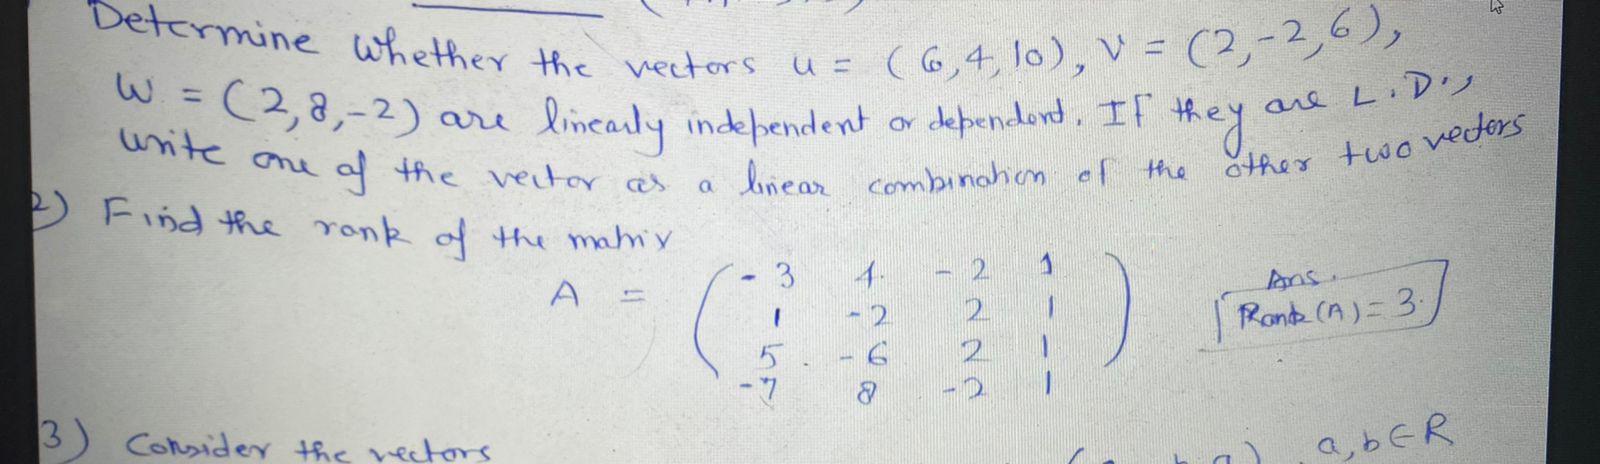 Determine whether the vectors u = (6,4,10), v = (2,-2,6),
w = (2,8,-2) are linearly independent or dependent. If they are L.D.,
write one of the vector as a linear combination of the other two vectors
2) Find the rank of the matrix
A = ( -3 4 -2 1
1 -2 2 1
5 -6 2 1
-7 8 -2 1 )
Ans.
Rank(A) = 3.
3) Consider the vectors
a, b ∈ R